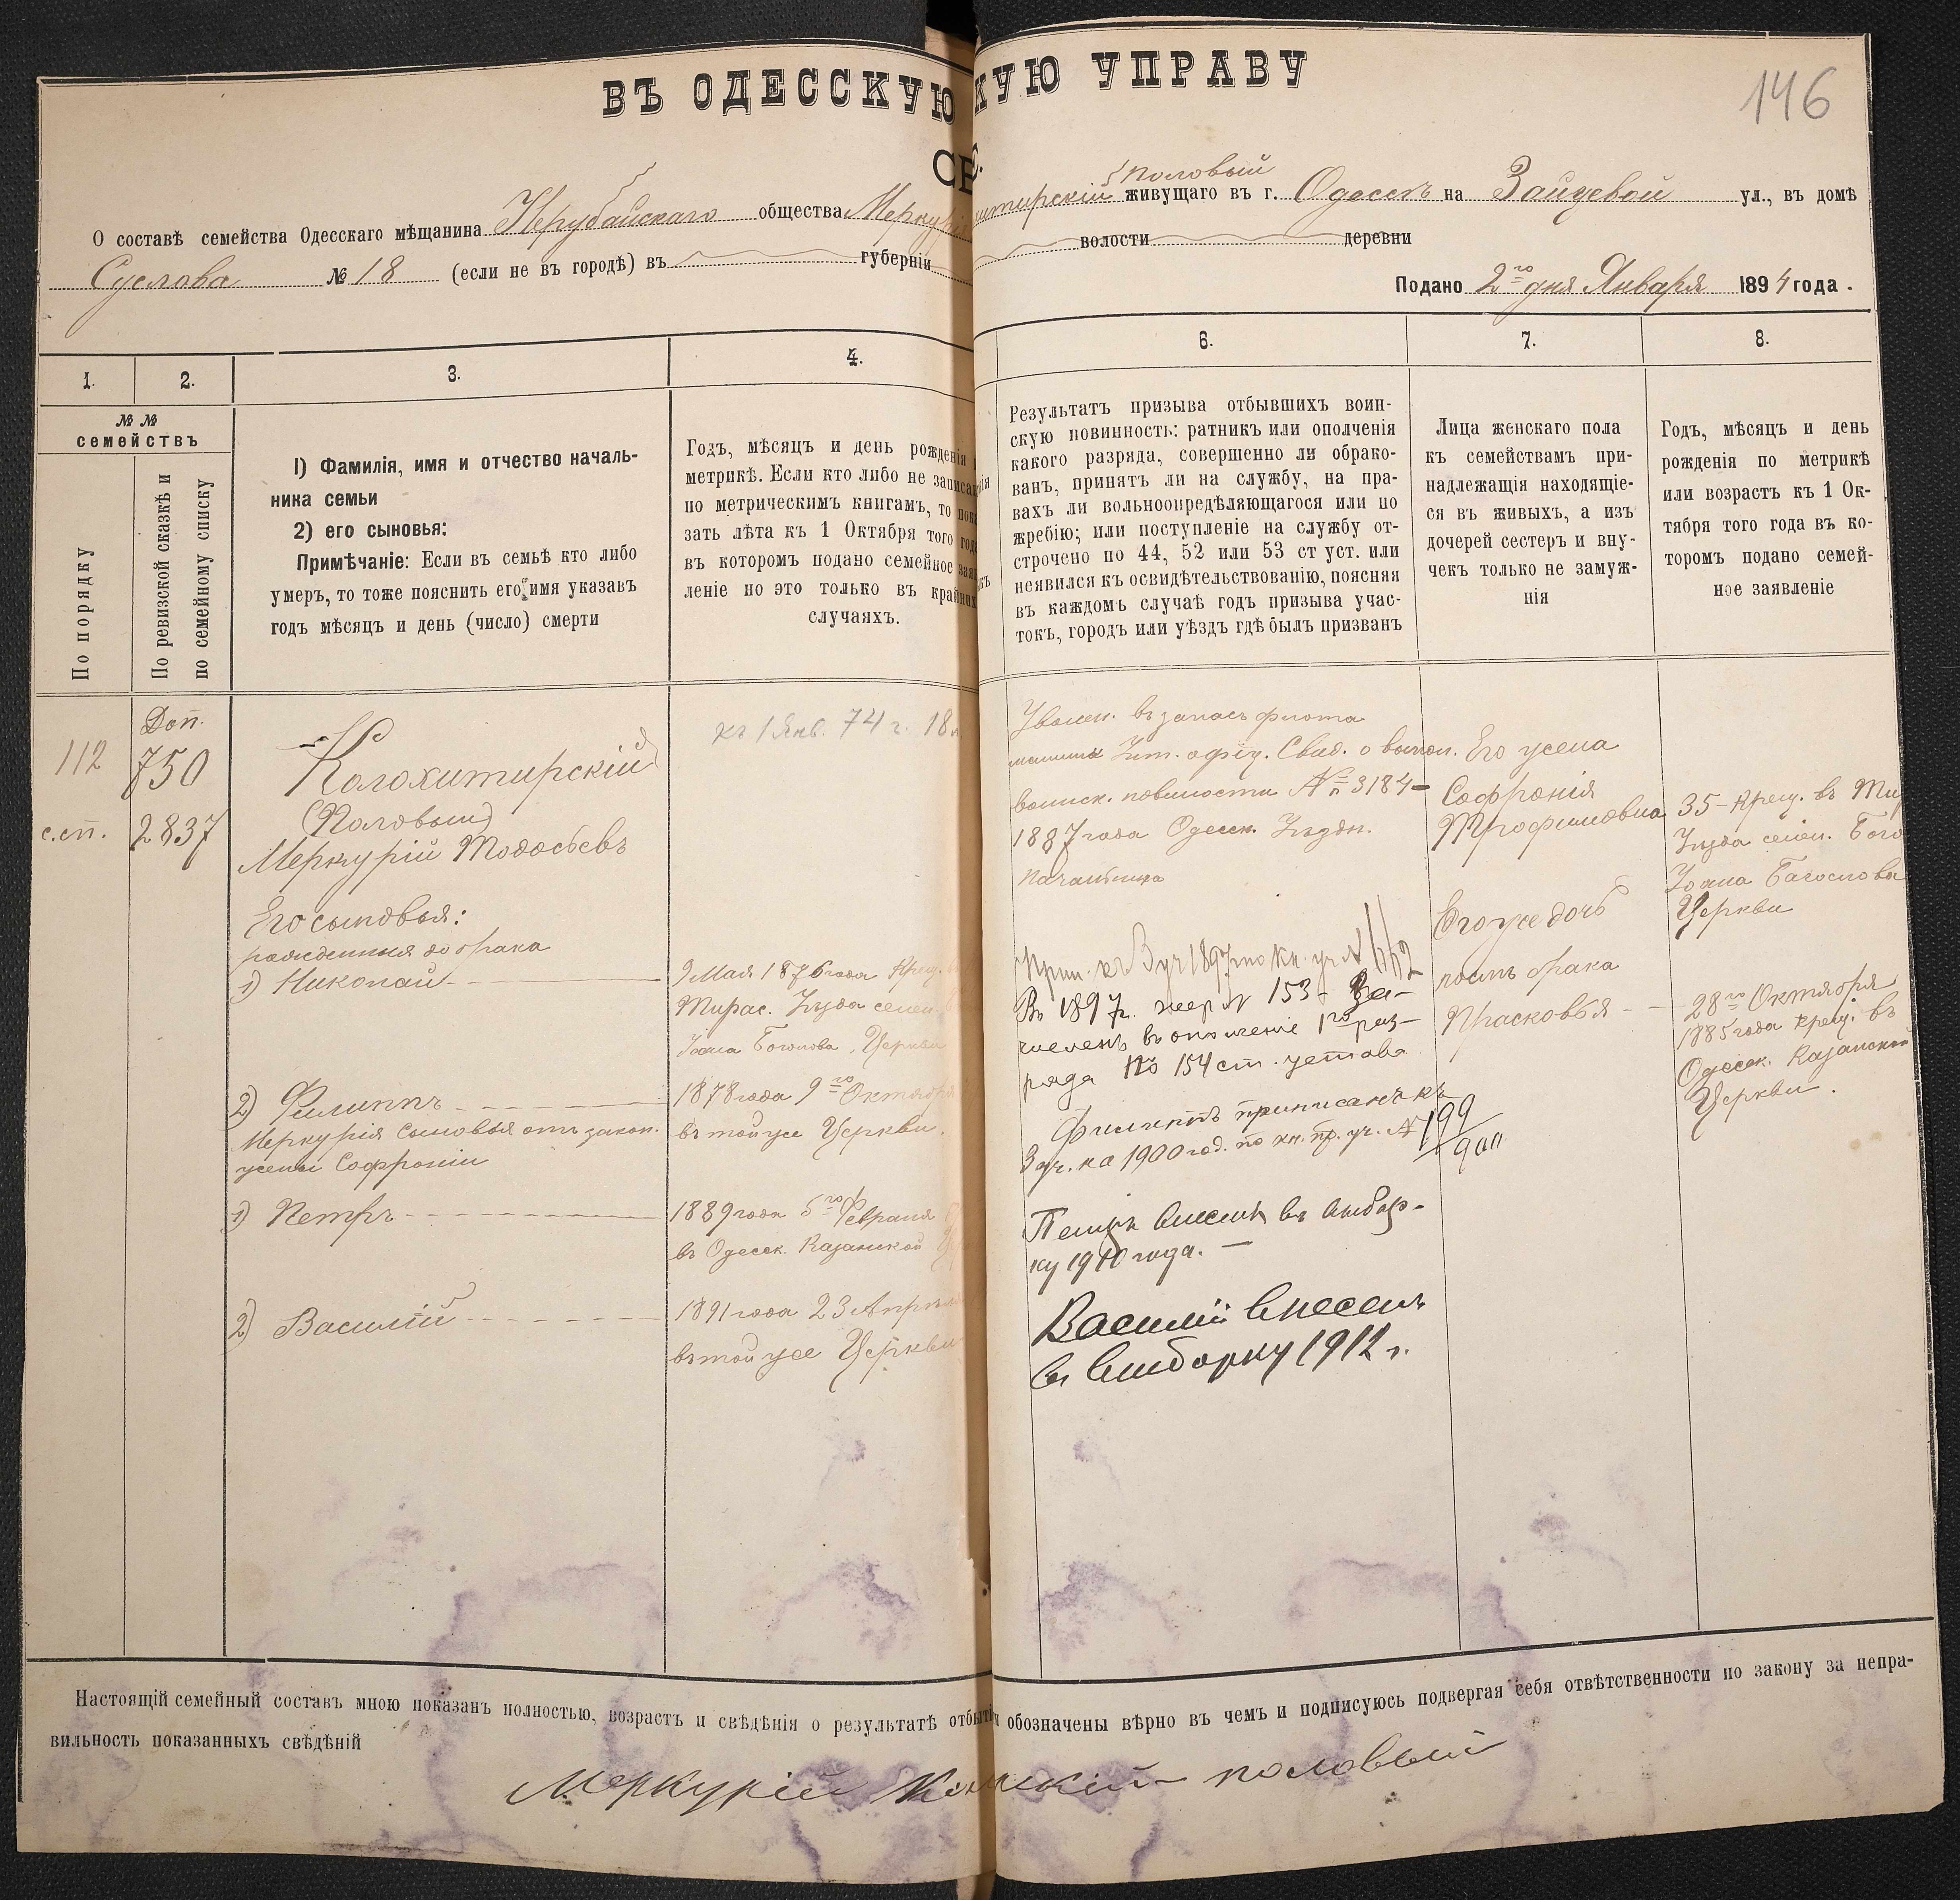 ВЪ ОДЕССКУЮ
КУЮ УПРАВУ
146
СЕ
О составѣ семейства Одесскаго мѣщанина Нерубайскаго общества Меркурі
итирскій Половый живущаго въ г. Одессѣ на Зайцевой ул., въ домѣ
Суслова № 18 (если не въ городѣ) въ губерніи
волости деревни
Подано 2го дня Января 1894 года.
1.
2.
3.
4.
6.
7.
8.
№ №
семействъ
По порядку
По ревизской сказкѣ и
по семейному списку
1) Фамилія, имя и отчество началь-
ника семьи
2) его сыновья:
Примѣчаніе: Если въ семьѣ кто либо
умеръ, то тоже пояснить его имя указавъ
годъ мѣсяцъ и день (число) смерти
Годъ, мѣсяцъ и день рожденія
метрикѣ. Если кто либо не записан
по метрическимъ книгамъ, то пока
зать лѣта къ 1 Октября того года
въ которомъ подано семейное заяв
леніе но это только въ крайнихъ
случаяхъ.
Результатъ призыва отбывшихъ воин-
скую повинность: ратникъ или ополченія
какого разряда, совершенно ли обрако-
ванъ, принятъ ли на службу, на пра-
вахъ ли вольноопредѣляющагося или по
жребію; или поступленіе на службу от-
строчено по 44, 52 или 53 ст уст. или
неявился къ освидѣтельствованію, поясняя
въ каждомъ случаѣ годъ призыва учас-
токъ, городъ или уѣздъ гдѣ былъ призванъ
Лица женскаго пола
къ семействамъ при-
надлежащія находящіе-
ся въ живыхъ, а изъ
дочерей сестеръ и вну-
чекъ только не замуж-
нія
Годъ, мѣсяцъ и день
рожденія по метрикѣ
или возрастъ къ 1 Ок-
тября того года въ ко-
торомъ подано семей-
ное заявленіе
112
Доп.
750
с.сп. 2837
Колохитирскій
(Половый)
Меркурій
Его сыновья:
рожденныя до брака
1) Николай
2) Филиппъ
Меркурія сыновья отъ закон.
жены Софроніи
1) Петръ
2) Василій
къ 1 Янв. 74 г. 18
9 Мая 1876 года Крещ.
Тирас. Уѣзда
Іоана Богослова Церкви
1878 года 9го Октября
въ той же Церкви.
1889 года 5го Февраля
въ Одесск. Казанской
1891 года 23 Апрѣля
въ той же Церкви
Уволен. въ запасъ флота
Свид. о выпол.
воинск. повинности № 3184
1887 года Одесск. Уѣздн.
Начальника
Прип. къ 3 уч 1897 по кн. уч № 662
Въ 1897 г. жер № 153 За-
численъ въ ополченіе 1го раз-
ряда по 154 ст. устава
Филиппъ приписанъ къ
3 уч. на 1900 год. по кн. пр. уч. № 199/900
Петръ внесенъ въ выбор-
ку 1910 года.
Василій внесенъ
въ выборку 1912 г.
Его жена
Софронія
Трофимовна
Его же дочь
послѣ брака
Прасковья
35 Крещ. въ Ти
Уѣзда
Іоана Богослова
Церкви
28го Октября
1885 года крещ. въ
Одесск. Казанской
Церкви.
Настоящій семейный составъ мною показанъ полностью, возрастъ и свѣдѣнія о результатѣ отбыті
обозначены вѣрно въ чемъ и подписуюсь подвергая себя отвѣтственности по закону за непра-
вильность показанныхъ свѣдѣній
Меркурій
половый